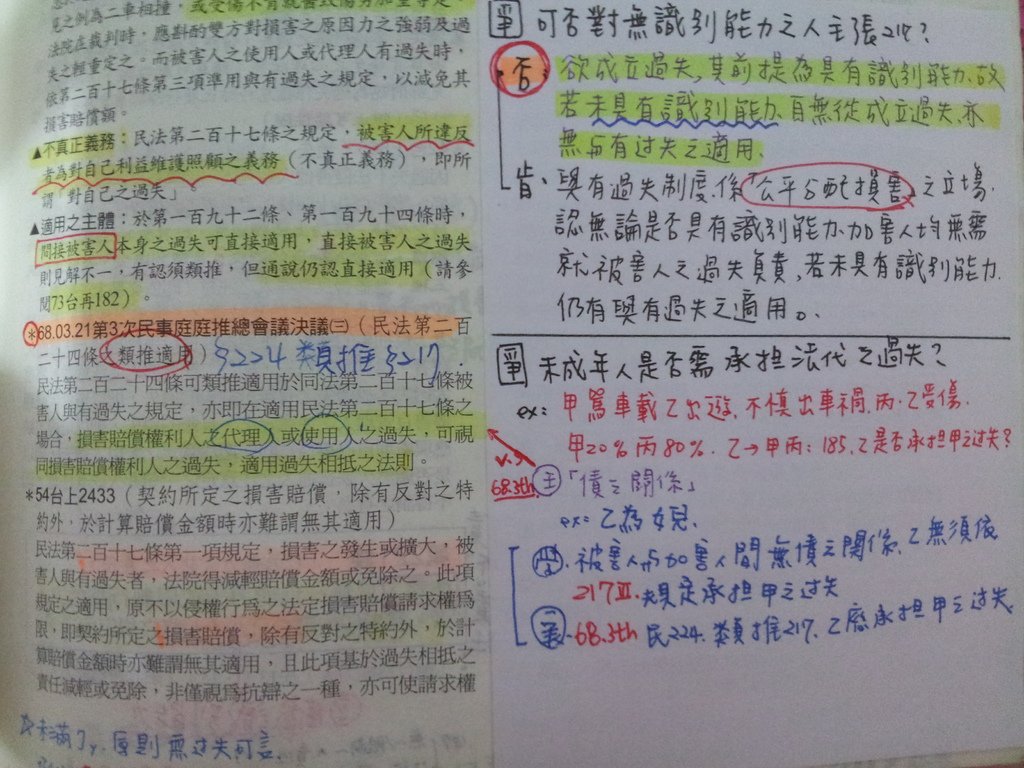 見之例為二車相撞，或受傷不自就醫致傷勞加重等是
法院在裁判時，應斟酌雙方對損害之原因力之強弱及過
失之輕重定之。而被害人之使用人或代理人有過失時，
依第二百十七條第三項準用與有過失之規定，以減免其
損害賠償額。
▲不真正義務：民法第二百十七條之規定，被害人所違反
者為對自己利益維護照顧之義務（不真正義務），即所
謂「對自己之過失」
▲適用之主體：於第一百九十二條、第一百九十四條時，
間接被害人本身之過失可直接適用，直接被害人之過失
則見解不一，有認須類推，但通說仍認直接適用（請參
閱73台再182）。
*68.03.21第3次民事庭庭推總會議決議㈢（民法第二百
二十四條之類推適用）§224類推§217
民法第二百二十四條可類推適用於同法第二百十七條被
害人與有過失之規定，亦即在適用民法第二百十七條之
場合，損害賠償權利人之代理人或使用人之過失，可視
同損害賠償權利人之過失，適用過失相抵之法則。
*54台上2433（契約所定之損害賠償，除有反對之特
約外，於計算賠償金額時亦難謂無其適用）
民法第二百十七條第一項規定，損害之發生或擴大，被
害人與有過失者，法院得減輕賠償金額或免除之。此項
規定之適用，原不以侵權行為之法定損害賠償請求權為
限，即契約所定之損害賠償，除有反對之特約外，於計
算賠償金額時亦難謂無其適用，且此項基於過失相抵之
責任減輕或免除，非僅視為抗辯之一種，亦可使請求權
未滿7y，原則無过失可言.
爭 可否對無識別能力之人主張217？
否：欲成立過失，其前提為具有識別能力，故
若未具有識別能力，自無從成立過失，亦
無与有过失之適用.
肯：與有過失制度，係「公平分配損害」之立場.
認無論是否具有識別能力，加害人均無需
就被害人之過失負責，若未具有識別能力.
仍有與有過失之適用。
爭 未成年人是否需承担法代之過失？
ex: 甲駕車載乙出遊，不慎出車禍，丙.乙受傷.
甲20% 丙80%. 乙→甲丙：185. 乙是否承担甲之过失？
v.s
68.3th
主「債之關係」
ex: 乙為女兒.
學. 被害人与加害人間無債之關係，乙無須依
217Ⅲ.規定承担甲之过失
實. 68.3th 民224.類推217. 乙應承担甲之过失